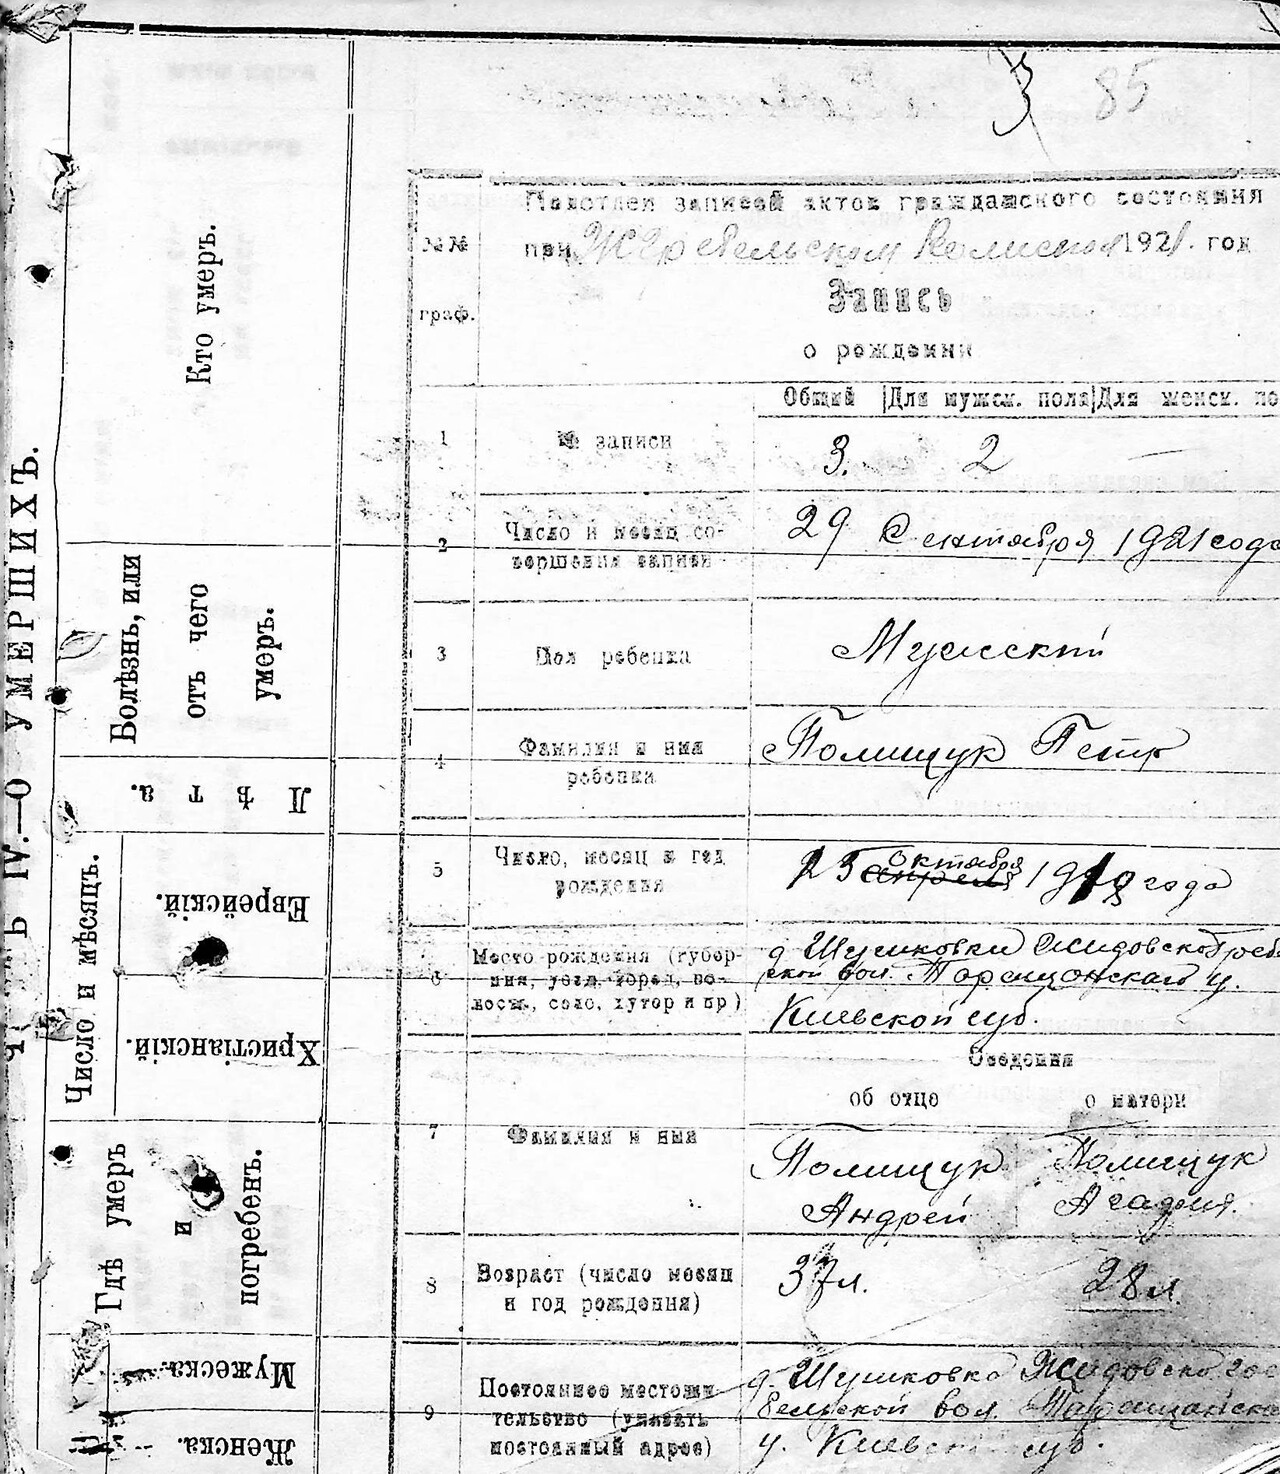 85
ЧАСТЬ IV.—О УМЕРШИХЪ.
Кто умеръ.
Болѣзнь, или
отъ чего
умеръ.
Лѣта.
Число и мѣсяцъ.
Еврейскій.
Христіанскій.
Гдѣ умеръ
и
погребенъ.
Мужеска.
Женска.
№№
граф.
Подотдел записей актов гражданского состояния
при Ж Гребельском 1921. год
Запись
о рождении
Общий Для мужск. пола Для женск. по
1 № записи 3. 2 —
2 Число и месяц со-
вершения записи
29 Сентября 1921 года
3 Пол ребенка Мужский
4 Фамилия и имя
ребенка
Полищук Петр
5 Число, месяц и год
рождения
октября
25 апреля 1918 года
6 Место рождения (губер-
ния, уезд, город, во-
лость, село, хутор и пр)
д. Шушковки Жидовско Гребе
ской вол. Таращанскаго у.
Киевской губ.
Сведения
об отце о матери
7 Фамилия и имя
Полищук Полищук
Андрей Агафия.
8 Возраст (число месяц
и год рождения)
37 л. 28 л.
9 Постоянное местожи
тельство (указать
постоянный адрес)
д. Шушковка Жидовско Гре
бельской вол. Таращанска
у. Киевской губ.